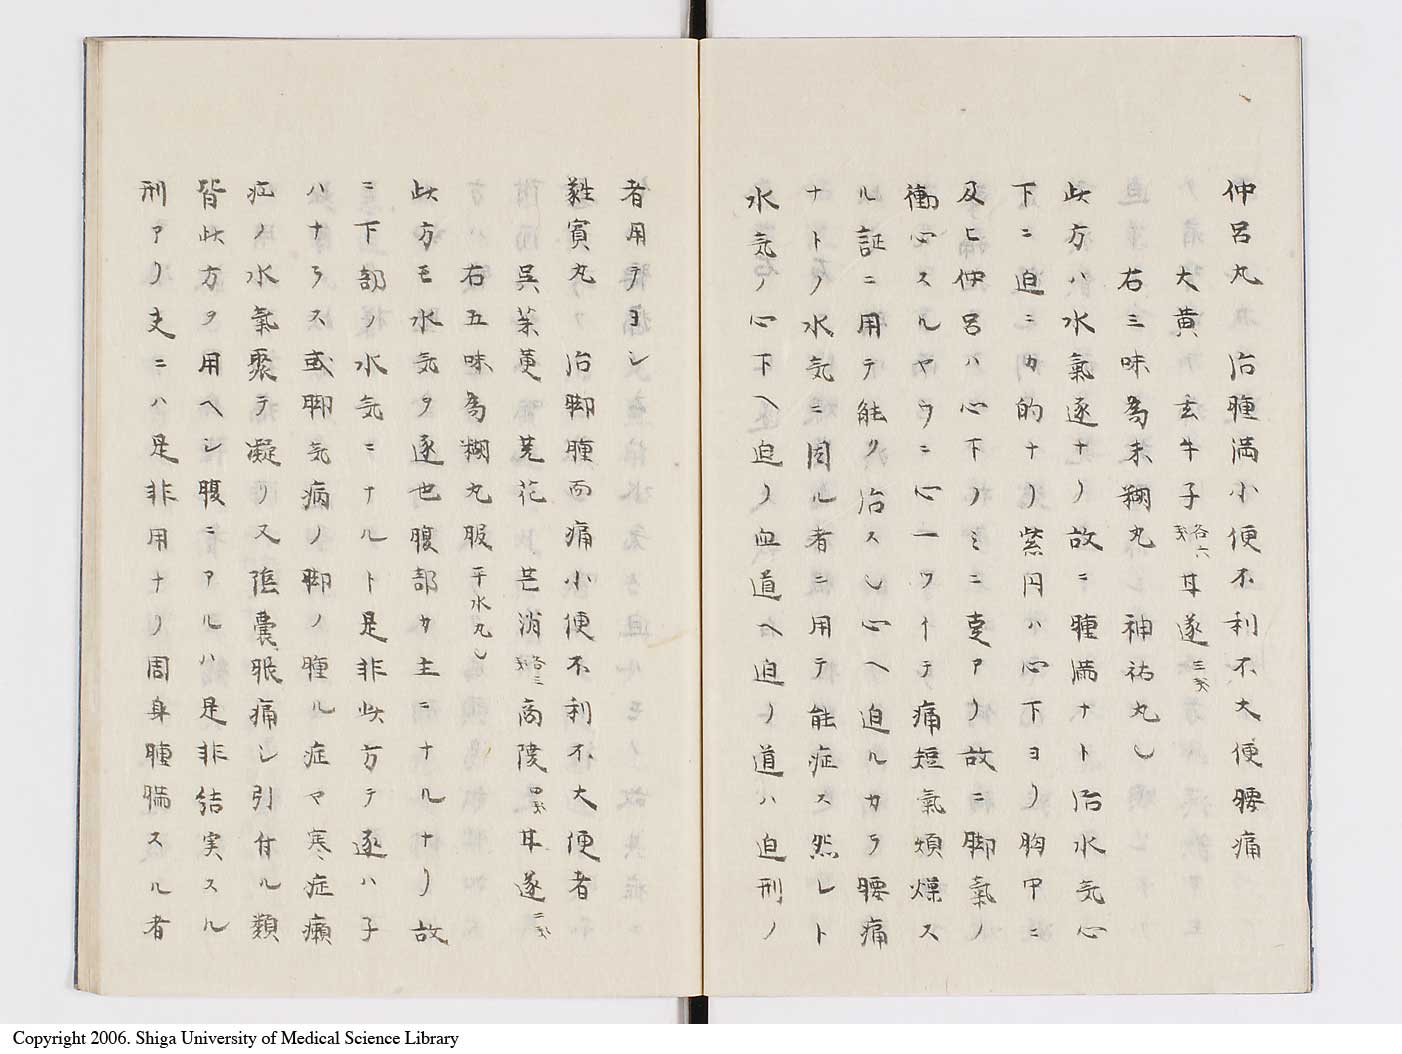 仲呂丸 治腫満小便不利不大便腰痛
大黄 玄牛子各六戔 耳遂三戔
右三味為末糊丸 神祐丸乄
此方ハ水氣逐ナリ故ニ腫満ナト治水気心
下ニ迫ニカ的ナリ紫円ハ心下ヨリ胸甲ニ
及ヒ仲呂ハ心下ノミニ専アリ故ニ脚氣ノ
衝心スルヤウニ心一ツイテ痛短氣煩燥ス
ル証ニ用テ能ク治スシ心ヘ迫ルカラ腰痛
ナトノ水気ニ因ル者ニ用テ能症ス然レト
水気ノ心下ヘ迫リ血道ヘ迫リ道ハ迫刑ノ
者用テヨシ
蕤賓丸 治脚腫而痛小便不利不大便者
呉茱萸 芫花 芒消各三戔 商陸四戔 耳遂二戔
右五味為糊丸服平水丸乄
此方モ水気ヲ逐也腹部カ主ニナルナリ故
ニ下部ノ水気ニナルト是非此方テ逐ハ子
ハナラス或脚気病ノ脚ノ腫ル症マ寒症癩
疝ノ水氣聚テ凝リ又陰嚢眼痛シ引付ル類
皆此方ヲ用ヘシ腹ニアルハ是非結実スル
刑アリ夫ニハ是非用ナリ周身腫腨スル者
Copyright 2006. Shiga University of Medical Science Library